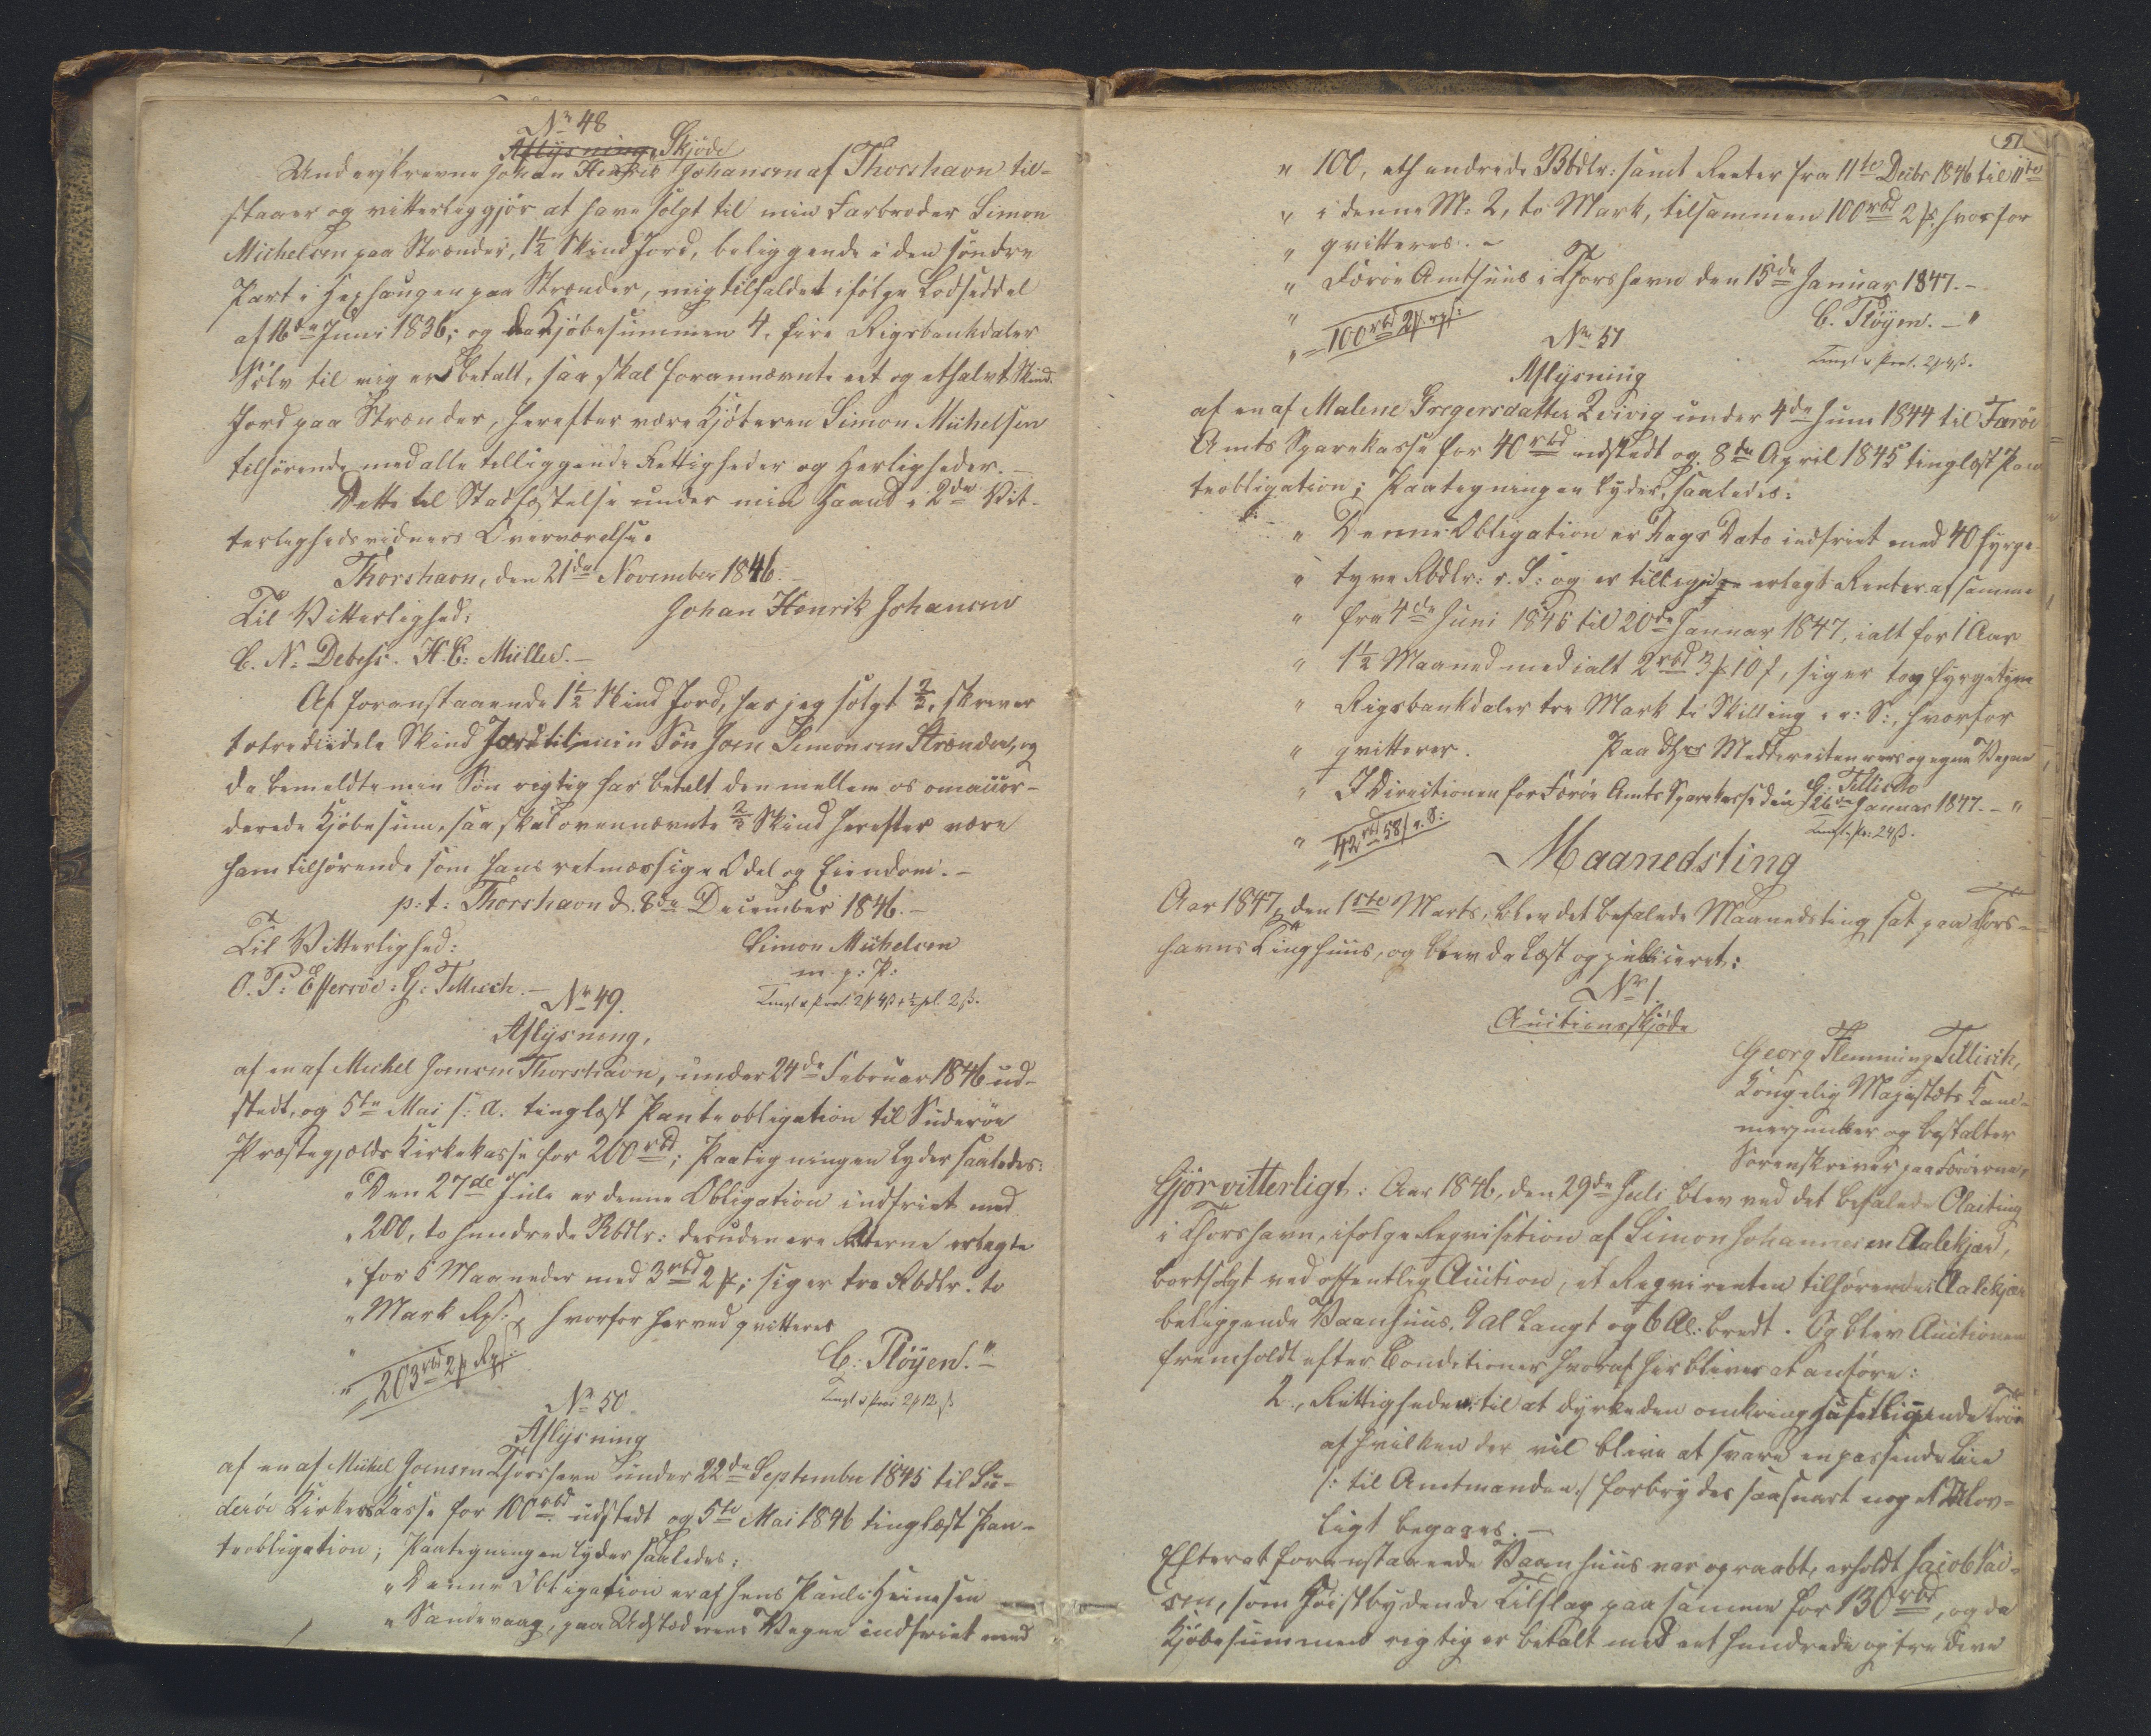 No 48
Aflysning Skjøde
Underskrevne Johan Henrik Johansen af Thorshavn til-
staaer og vitterliggjør at have solgt til min Farbroder Simon
Michelsen paa Strænder, 1½ Skind Jord, beliggende i den søndre
Part i paa Strænder, mig tilfaldet ifølge Lodseddel
af 16de Juni 1836; og da Kjøbesummen 4, fire Rigsbankdaler
Sølv til mig er betalt, saa skal forannævnte eet og ethalvt Skind
Jord paa Strænder, herefter være Kjøberen Simon Michelsen
tilhørende med alle tilliggende Rettigheder og Herligheder. –
Dette til Stadfæstelse under min Haand i 2de Vit-
terlighedsvidners Overværelse.
Thorshavn, den 21de November 1846. –
Til Vitterlighed: Johan Henrik Johansen
C. N. Debess. H. C. Müller. –
Af foranstaaende 1½ Skind Jord, har jeg solgt ⅔, skriver
totrediedele Skind Jord til min Søn Joen Simonsen Strænder, og
da bemeldte min Søn rigtig har betalt den mellem os omaccor-
derede Kjøbesum, saa skal ovennævnte ⅔ Skind herefter være
ham tilhørende som hans retmæssige Odel og Eiendom. –
p: t: Thorshavn d. 8de December 1846. –
Til Vitterlighed: Simon Michelsen
m. p: P:
O. P: Effersøe. G: Tillisch. –
No 49.
Aflysning,
af en af Michel Joensen Thorshavn, under 24de Februar 1846 ud-
stedt, og 5te Mai s: A. tinglæst Panteobligation til Suderøe
Præstegjælds Kirkekasse for 200 rbd; Paategningen lyder saaledes:
"Den 27de Juli er denne Obligation indfriet med
"200, to hundrede Rbdlr: desuden ere Renterne erlagte
"for 5 Maaneder med 3 rbd 2 ₻; siger tre Rbdlr. to
"Mark , hvorfor herved qvitteres
" C: Pløyen."–
" 203 rbd 2 ₻
No 50.
Aflysning
af en af Michel Joensen Thorshavn under 22de September 1845 til Su-
derøe Kirkes Kasse for 100 rbd udstedt og 5te Mai 1846 tinglæst Pan-
teobligation; Paategningen lyder saaledes:
"Denne Obligation er af Hens Pauli Heinesen
"Sandevaag, paa Udstederens Vegne indfriet med
51
" 100, ethundrede Rbdlr: samt Renter fra 11te Decbr 1846 til 11te
" i denne M: 2, to Mark, tilsammen 100 rbd 2 ₻ hvorfor
" qvitteres. –
" Færøe Amtshuus i Thorshavn den 15de Januar 1847. –
" C. Pløyen. – "
" 100 rbd 2 ₻
No 51
Aflysning
af en af Malene Gregersdatter Qvivig under 4de Juni 1844 til Færøe
Amts Sparekasse for 40 rbd udstedt og 8de April 1845 tinglæst Pan-
teobligation; Paategningen lyder, saaledes:
" Denne Obligation er Dags Dato indfriet med 40 fyrge-
" tyve Rbdlr: r. S: og er tillige erlagt Renter af samme
" fra 4de Juni 1845 til 20de Januar 1847, ialt for 1 Aar
" 1½ Maaned med ialt 2 rbd 3 ₻ 10 ß, siger to og fyrgetyve
" Rigsbankdaler tre Mark ti Skilling r: S:, hvorfor
" qvitterer. Paa Medtirecteurers og egne Vegne
G: Tillisch
" I Directionen for Færøe Amts Sparekasse den 26de Januar 1847. – "
" 42 rbd 58 ß r. S:
Maanedsting
Aar 1847, den 1ste Marts, blev det befalede Maanedsting sat paa Thors-
havns Tinghuus, og blev da læst og publiceret:
No 1.
Auctionsskjøde
Georg Flemming Tillisch,
Kongelig Majestæts Kam-
merjunker og bestalter
Sorenskriver paa Færøerne,
Gjør vitterligt: Aar 1846, den 29de Juli blev ved det befalede Olaiting
i Thorshavn, ifølge Reqvisition af Simon Johannesen Aalekjær,
bortsolgt ved offentlig Auction, et Reqvirenten tilhørende i Aalekjær
beliggende Vaanhuus, 9 Al langt og 6 Al: bredt. Og blev Auctionen
fremholdt efter Conditioner hvoraf her bliver at anføre:
2., Rettigheden til at dyrke den omkring Huset liggende Trøe
af hvilken der vil blive at svare en passende Leie
/: til Amtmanden :/ forbrydes saasnart noget Ulov-
ligt begaaes. –
Efterat foranstaaende Vaanhuus var opraabt, erholdt Jacob Jac-
sen, som Høistbydende Tilslag paa samme for 130 rbd, og da
Kjøbesummen rigtig er betalt med eet hundrede og tredive